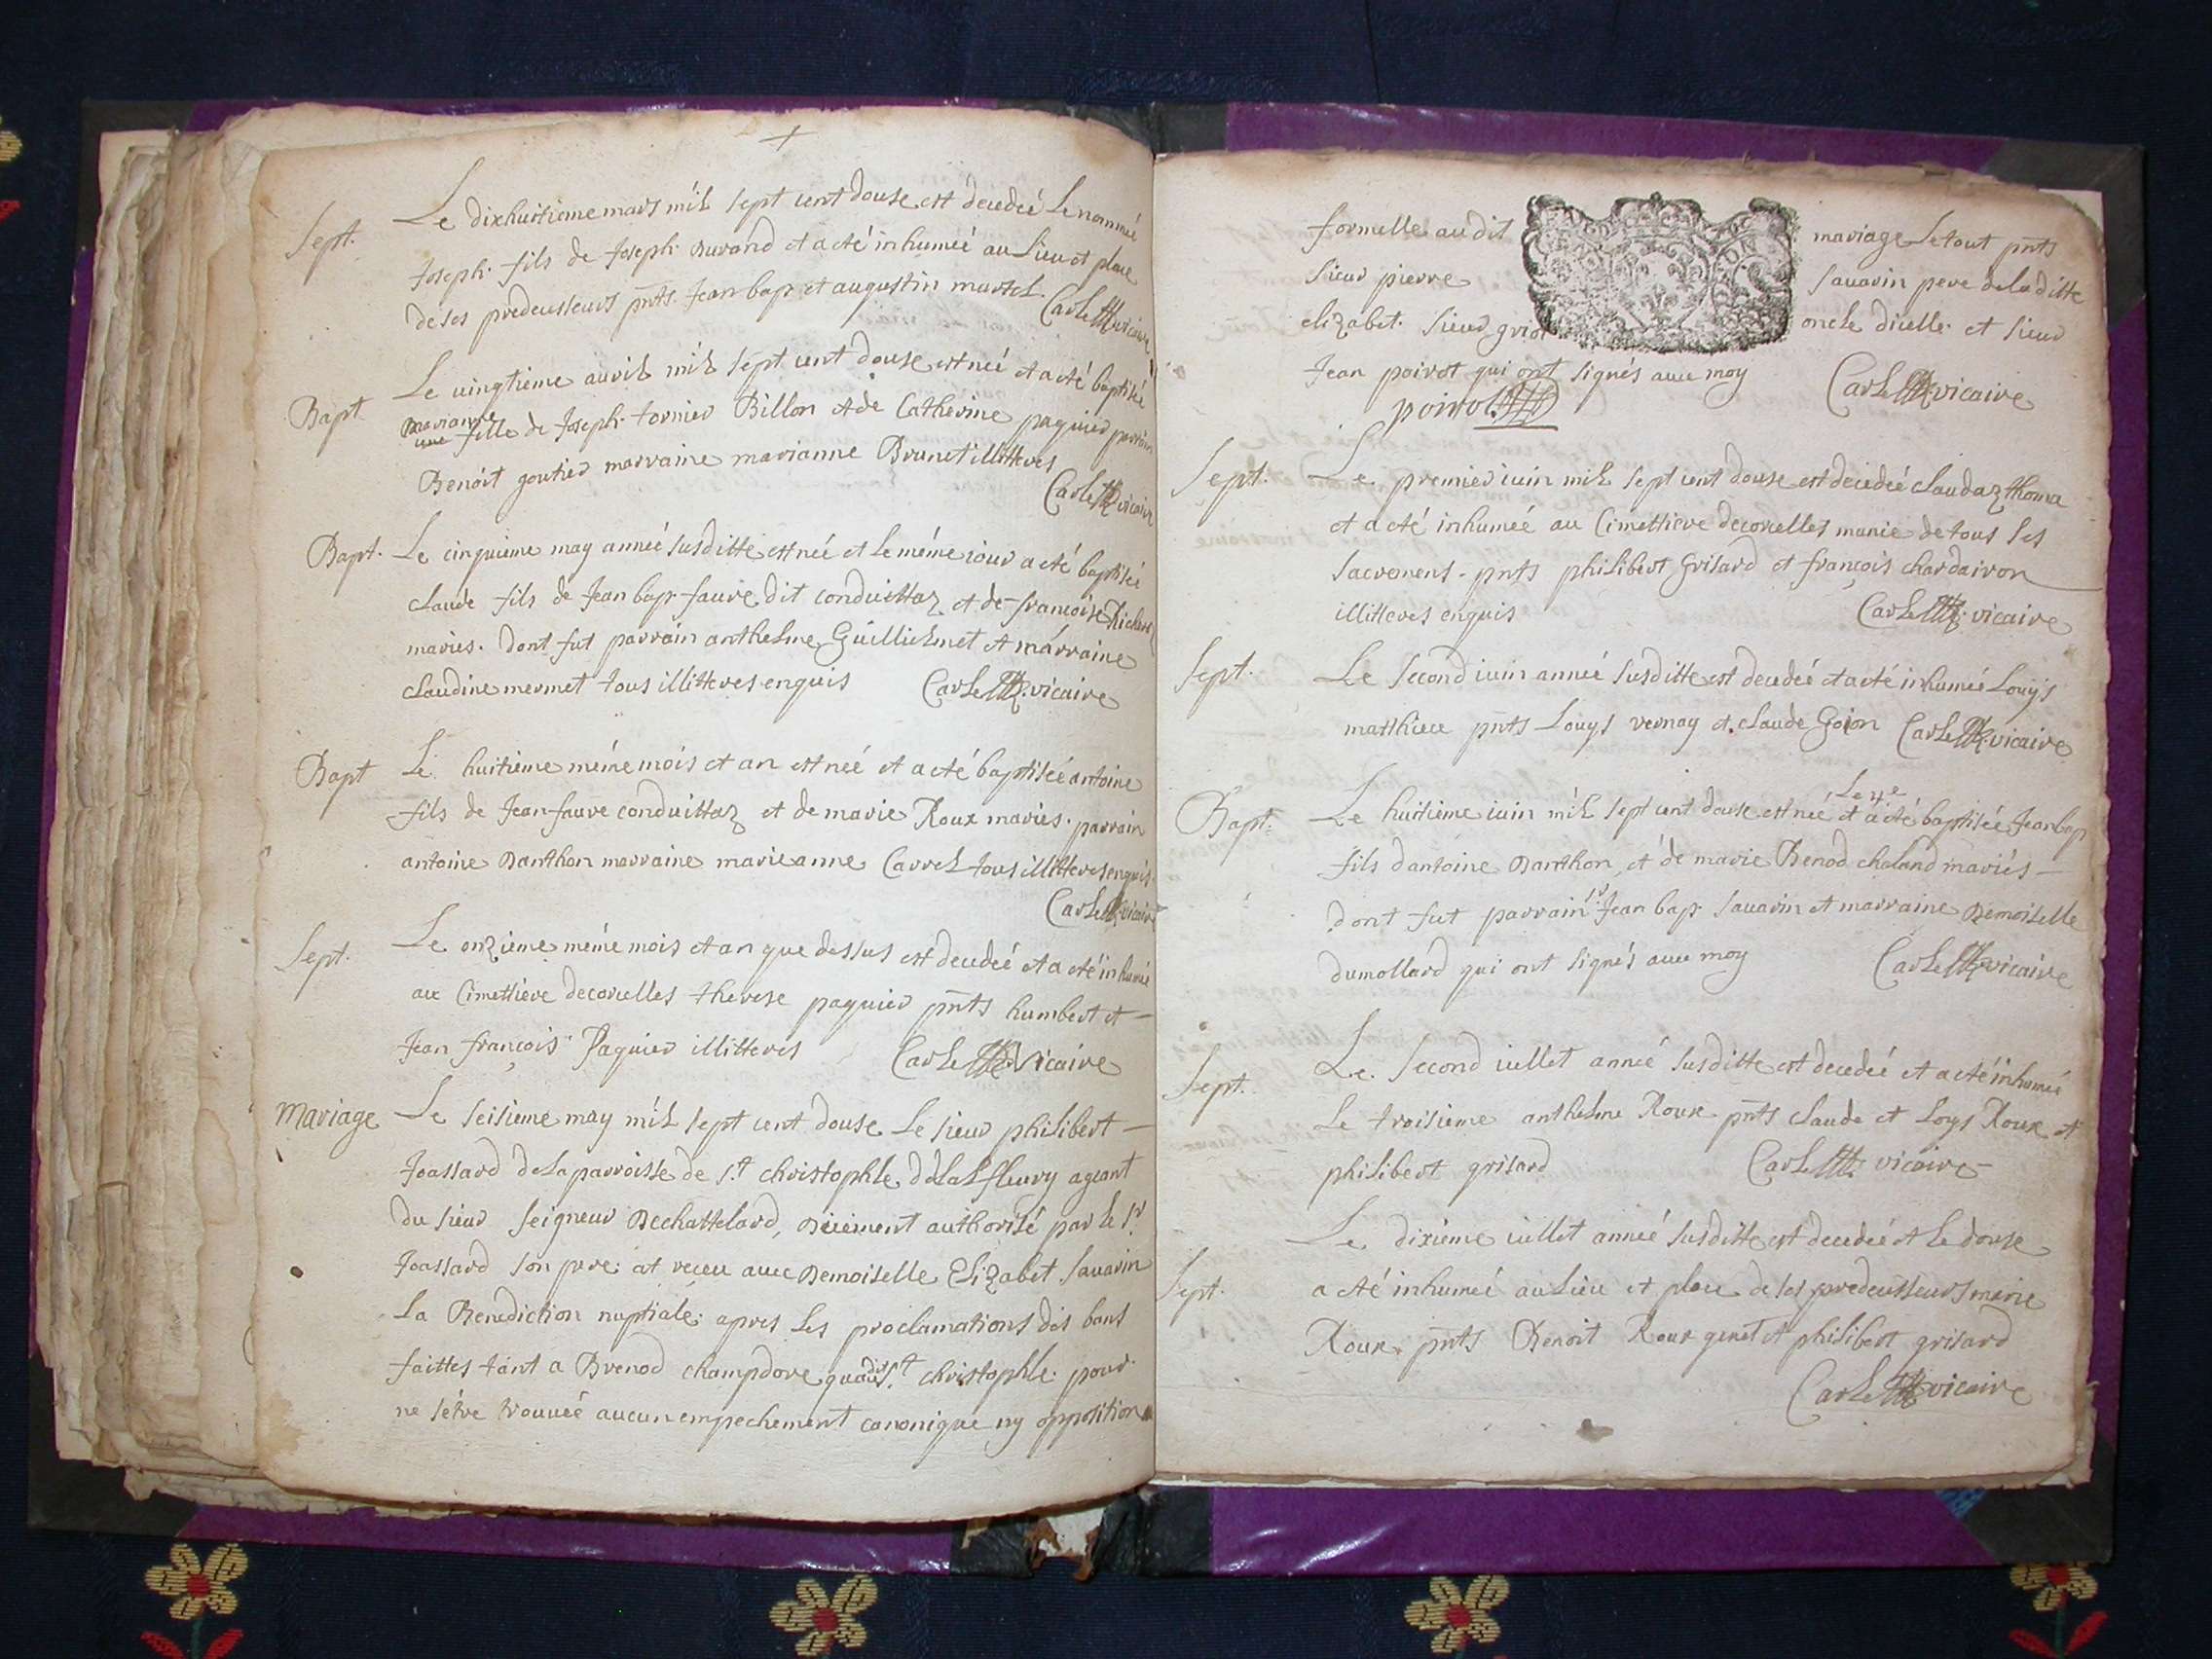 Sept. Le dixhuitieme mars mil sept cent douse est décedeé le nommé
Joseph fils de Joseph Durand et a eté inhumeé au lieu et place
de ses predecesseurs pnts Jean bap et augustin martel. Carle vicaire
Le vingtieme auril mil sept cent douse est neé et a eté baptisée
Bapt. marianne fille de Joseph tornier Billon et de Catherine paquier parrain
Benoit goutier marraine marianne Brunet illitteres
Carle vicaire
Bapt. Le cinquieme may anneé susditte est neé et le méme iour a eté baptiseé
claude fils de Jean bap faure dit conduittaz et de francoise Richard
mariés. dont fut parrain anthelme Guillielmet et marraine
claudine mermet tous illitteres enquis Carle vicaire
Bapt Le huitieme méme mois et an est neé et a eté baptiseé antoine
fils de Jean faure conduittaz et de marie Roux mariés. parrain
antoine Danthon marraine marieanne Carrel tous illitteres enquis
Carle vicaire
Sept. Le onzieme méme mois et an que dessus est decedeé et a eté inhumeé
au Cimettiere decorcelles therese paquier pnts humbert et
Jean françois Paquier illitteres Carle vicaire
Mariage Le seisieme may mil sept cent douse Le sieur philibert
Joassard dela parroisse de St christophle ageant
du sieur seigneur Dechattelard, authorisé par le Sr
Joassard son pere at receu auec Demoiselle Elizabet sauarin
La Benediction nuptiale apres les proclamations des bans
faittes tant a Brenod champdore St christophle pour
ne s'étre trouueé aucun empechement canonique ny opposition
formelle au dit mariage Le tout pnts
sieur pierre sauarin pere de la ditte
elizabet. sieur oncle dicelle et sieur
Jean poirot qui ont signés auec moy Carle vicaire
poirot
Sept. Le premier iuin mil sept cent douse est decedeé claudaz thoma
et a eté inhumeé au Cimettiere decorcelles munie de tous ses
sacremens. pnts philibert Grisard et françois chardairon
illitteres enquis Carle vicaire
Sept. Le second iuin anneé susditte est decedeé et a eté inhumeé Louys
matthieu pnts Louys vernay et claude Goion Carle vicaire
Le
Bapt. Le huitieme iuin mil sept cent douse est neé et a eté baptiseé Jean bap
fils dantoine Danthon, et de marie Benod chaland mariés
dont fut parrain Sr Jean bap sauarin et marraine Demoiselle
dumollard qui ont signés auec moy Carle vicaire
Sept. Le second iullet anneé susditte est decedeé et a eté inhumeé
Le troisieme anthelme Roux pnts claude et Loys Roux et
philibert grisard Carle vicaire
Le dixieme iullet anneé susditte est decedeé et le douse
Sept. a eté inhumeé au lieu et place de ses predecesseurs marie
Roux. pnts Benoit Roux genet et philibert grisard
Carle vicaire